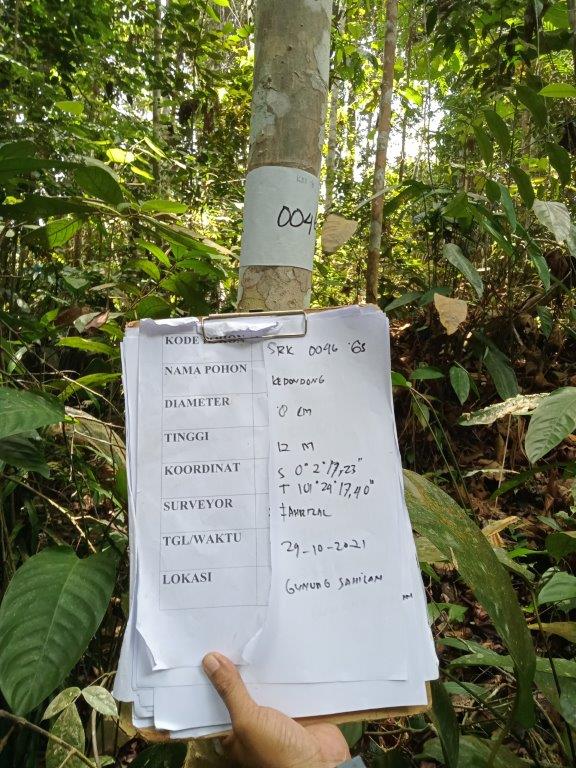 004
KODE POHON SRK 0046
NAMA POHON KEDONDONG
DIAMETER CM
TINGGI 12 M
KOORDINAT S 0° 2' 17,23"
T 101° 24' 17,40"
SURVEYOR : FAHRIZAL
TGL/WAKTU 29-10-2021
LOKASI GUNUNG SAHILAN